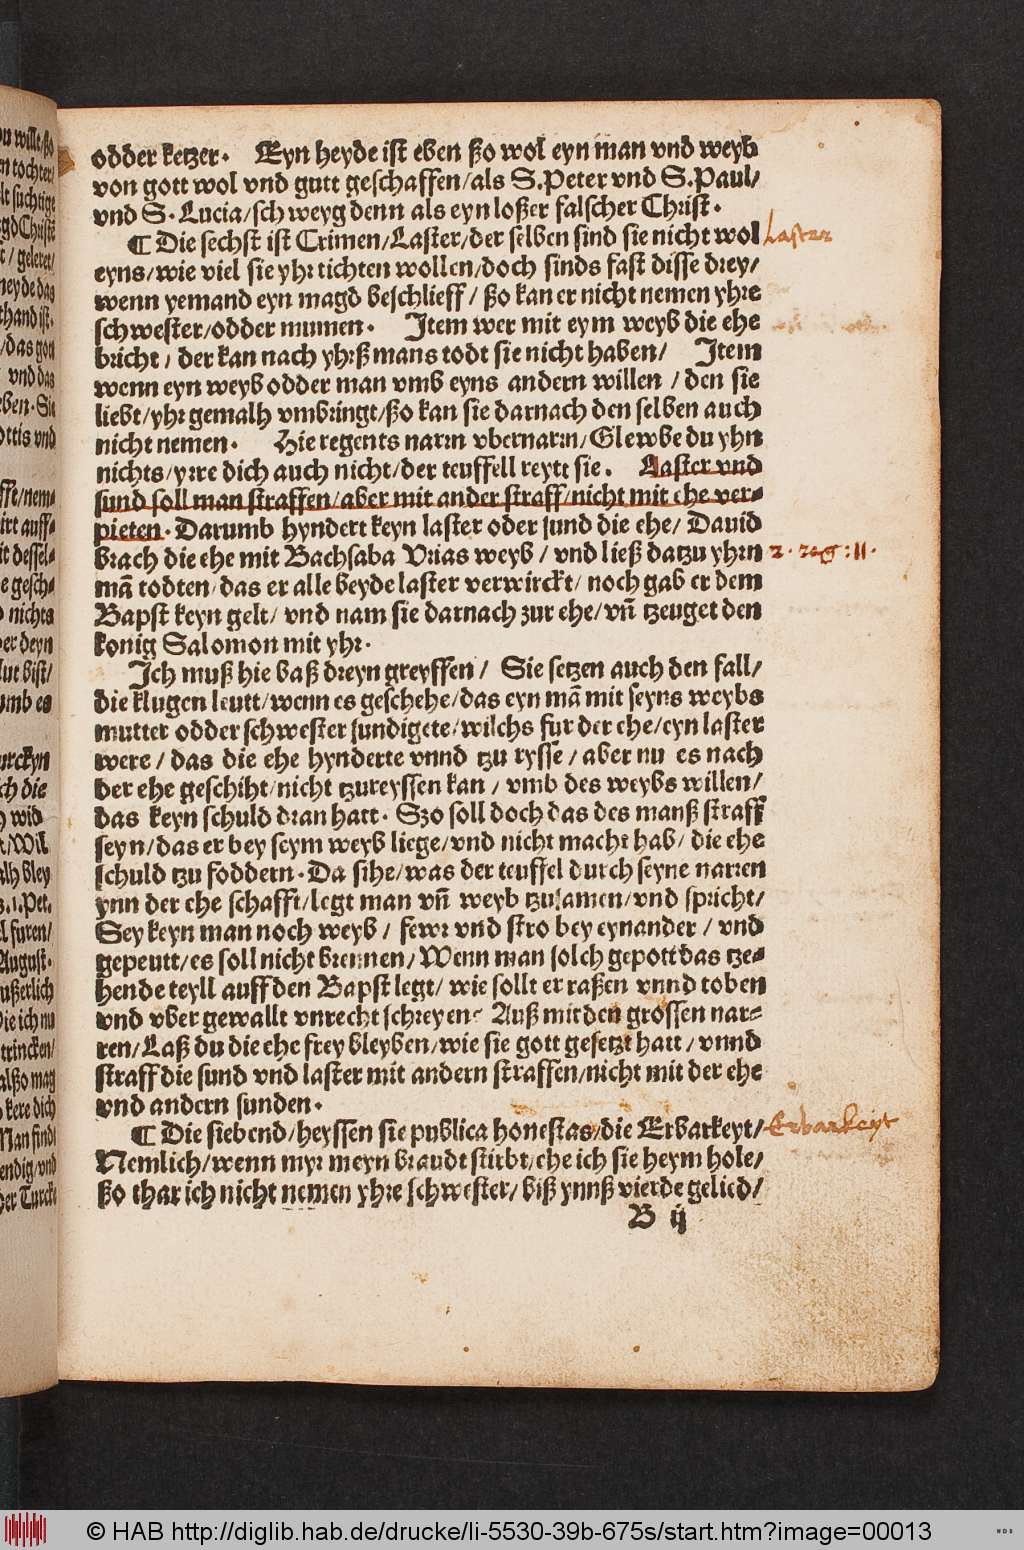 odder ketzer. Eyn heyde ist eben ßo wol eyn man vnd weyb
von gott wol vnd gutt geschaffen/als S.Peter vnd S.Paul/
vnd S. Lucia/schweyg denn als eyn loßer falscher Christ.
¶ Die sechst ist Crimen/Laster/der selben sind sie nicht wol
Laster
eyns/wie viel sie yhr tichten wollen/doch sinds fast disse drey/
wenn yemand eyn magd beschlieff/ ßo kan er nicht nemen yhre
schwester/odder mumen. Item wer mit eym weyb die ehe
bricht/ der kan nach yhrß mans todt sie nicht haben/ Item
wenn eyn weyb odder man vmb eyns andern willen /den sie
liebt/yhr gemalh vmbringt/ßo kan sie darnach den selben auch
nicht nemen. Hie regents narrn vbernarrn/Glewbe du yhn
nichts/yrre dich auch nicht/der teuffell reytt sie. Laster vnd
sund soll man straffen/aber mit ander straff/nicht mit ehe ver-
pieten. Darumb hyndert keyn laster oder sund die ehe/ Dauid
brach die ehe mit Bachsaba Vrias weyb/ vnd ließ datzu yhrn
2. reg: 11.
mā todten/das er alle beyde laster verwirckt/ noch gab er dem
Bapst keyn gelt/ vnd nam sie darnach zur ehe/vn̄ tzeuget den
konig Salomon mit yhr.
Ich muß hie baß dreyn greyffen/ Sie setzen auch den fall/
die klugen leutt/wenn es geschehe/das eyn mā mit seyns weybs
mutter odder schwester sundigete/wilchs fur der ehe/eyn laster
were/ das die ehe hynderte vnnd tzu rysse/aber nu es nach
der ehe geschiht/nicht tzureyssen kan/ vmb des weybs willen/
das keyn schuld dran hatt. Szo soll doch das des manß straff
seyn/das er bey seym weyb liege/vnd nicht macht hab/ die ehe
schuld tzu foddern. Da sihe/was der teuffel durch seyne narren
ynn der ehe schafft/legt man vn̄ weyb tzusamen/vnd spricht/
Sey keyn man noch weyb/ fewr vnd stro bey eynander/ vnd
gepeutt/es soll nicht brennen/Wenn man solch gepott das tze-
hende teyll auff den Bapst legt/ wie sollt er raßen vnnd toben
vnd vber gewallt vnrecht schreyen? Auß mit den grossen nar-
ren/Laß du die ehe frey bleyben/wie sie gott gesetzt hatt/vnnd
straff die sund vnd laster mit andern straffen/nicht mit der ehe
vnd andern sunden.
¶ Die siebend/heyssen sie publica honestas/die Erbarkeyt/
Erbarkeyt
Nemlich/wenn myr meyn braudt stirbt/ehe ich sie heym hole/
ßo thar ich nicht nemen yhre schwester/ biß ynnß vierde gelied/
B ij
© HAB http://diglib.hab.de/drucke/li-5530-39b-675s/start.htm?image=00013